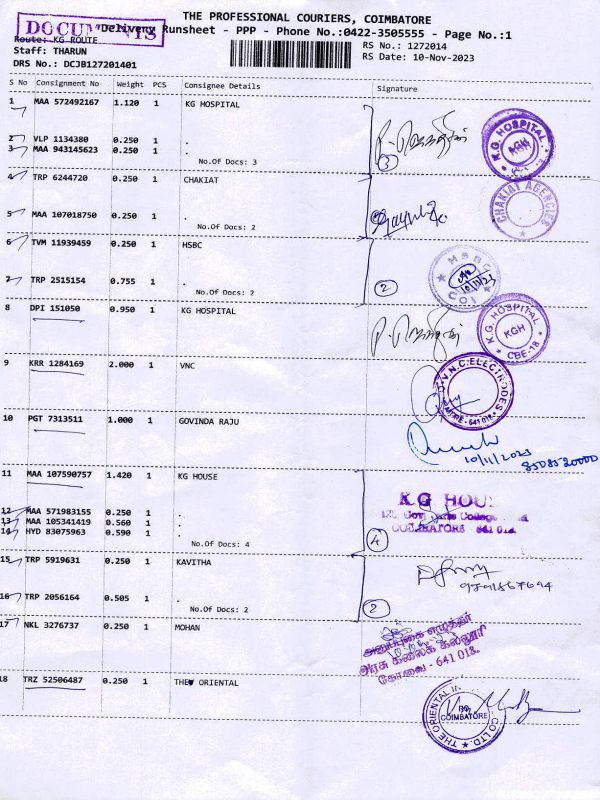 THE PROFESSIONAL COURIERS, COIMBATORE
DOCUMENTS
Delivery Runsheet - PPP - Phone No.:0422-3505555 - Page No.:1
Route: KG ROUTE
RS No.: 1272014
Staff: THARUN
RS Date: 10-Nov-2023
DRS No.: DCJB127201401
S No Consignment No Weight PCS Consignee Details Signature
1 MAA 572492167 1.120 1 KG HOSPITAL
2 VLP 1134380 0.250 1 .
3 MAA 943145623 0.250 1 .
No.Of Docs: 3
3
K.G. HOSPITAL
KGH
4 TRP 6244720 0.250 1 CHAKIAT
5 MAA 107018750 0.250 1 .
No.Of Docs: 2
CHAKIAT AGENCIES
6 TVM 11939459 0.250 1 HSBC
7 TRP 2515154 0.755 1 .
No.Of Docs: 2
2
HSBC
10/11/23
8 DPI 151050 0.950 1 KG HOSPITAL
K.G. HOSPITAL
KGH
CBE-18
9 KRR 1284169 2.000 1 VNC
V.N.C. ELECTRODES
641 018
10 PGT 7313511 1.000 1 GOVINDA RAJU
10/11/2023
11 MAA 107590757 1.420 1 KG HOUSE
12 MAA 571983155 0.250 1 .
13 MAA 105341419 0.560 1 .
14 HYD 83075963 0.590 1 .
No.Of Docs: 4
4
K.G HOU
COIMBATORE 641 018
15 TRP 5919631 0.250 1 KAVITHA
16 TRP 2056164 0.505 1 .
No.Of Docs: 2
2
17 NKL 3276737 0.250 1 MOHAN
அலுவலக எழுத்தர்
அரசு கலைக் கல்லூரி
கோவை - 641 018.
18 TRZ 52506487 0.250 1 THE ORIENTAL
THE ORIENTAL
COIMBATORE
CO. LTD.